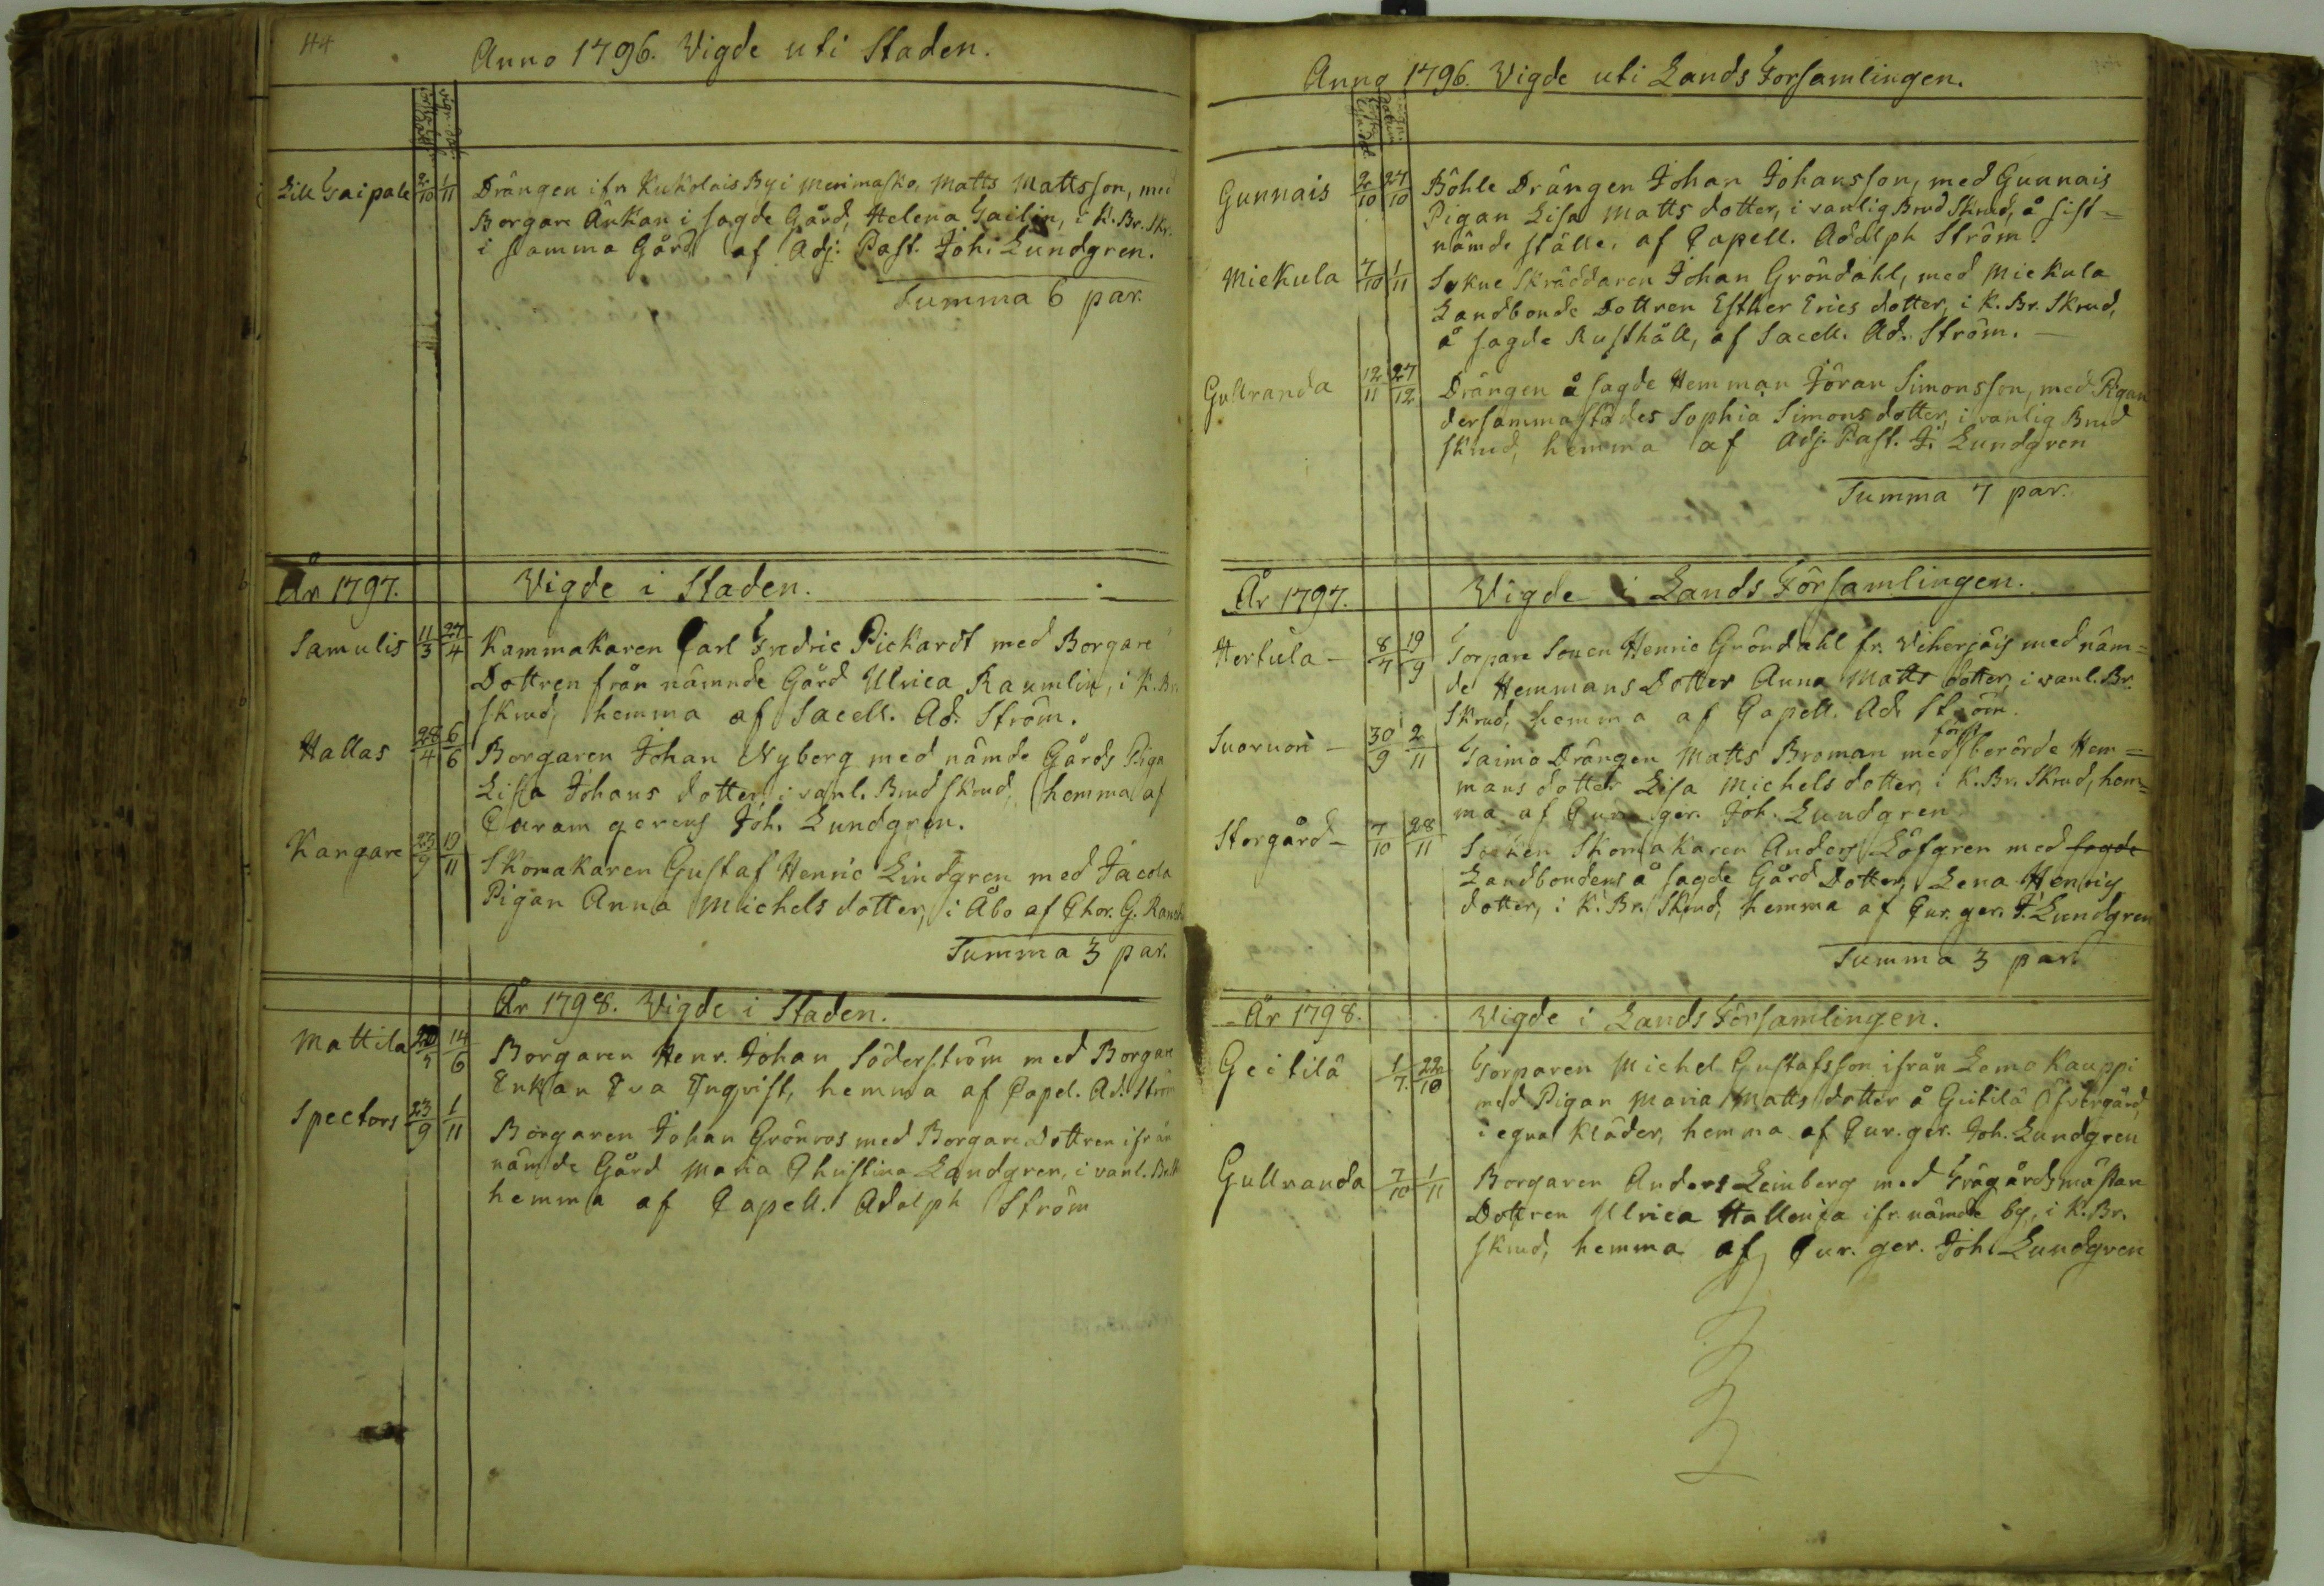 44
Anno 1796. Vigde uti Staden.
Lill Taipale 2/10 1/11 Drängen ifn Kukolais By i Merimasko, Matts Mattsson, med
Borgare Änkan i sagde Gård, Helena Tailin, i K. Br. Skr.
i samma Gård af Adj. Past. Joh. Lundgren.
Summa 6 par.
År 1797. Vigde i Staden.
Samulis 11/3 27/4 Kammakaren Carl Fredric Pickardt med Borgare
Dottren från nämnde Gård Ulrica Raumlin, i K. Br.
skrud, hemma af Sacell. Ad. Ström.
Hallas 28/4 6/6 Borgaren Johan Nyberg med nämde Gårds Piga
Lisa Johans dotter, i vanl. Brud skrud, hemma af
Curam gerens Joh. Lundgren.
Kangare 23/9 19/11 Skomakaren Gustaf Henric Lindgren med Jacola
Pigan Anna Michels dotter, i Åbo af Chor. G.
Summa 3 par.
År 1798. Vigde i Staden.
Mattila 20/5 14/6 Borgaren Henr. Johan Söderström med Borgare
Enkan Eva Engvist, hemma af Capel. Ad. Ström
Spectors 23/9 1/11 Borgaren Johan Grönroos med Borgare dottren ifrån
nämde Gård Maria Christina Landgren, i vanl.
hemma af Capell. Adolph Ström
Anno 1796. Vigde uti Lands Forsamlingen.
Gunnais 2/10 27/10 Böhle Drängen Johan Johansson, med Gunnais
Pigan Lisa Matts dotter, i vanlig Brud Skrud, å sist=
nämde ställe, af Capell. Adolph Ström.
Miekula 7/10 1/11 Sokne Skräddaren Johan Gröndahl, med Miekula
Landbonde Dottren Esther Erics dotter, i K. Br. Skrud,
å sagde Rusthåll, af Sacell. Ad. Ström. —
Gullranda 12/11 27/12 Drängen å sagde Hemman Jöran Simonsson, med Pigan
dersammastädes Sophia Simons dotter, i vanlig Brud
skrud, hemma af Adj. Past. J. Lundgren
Summa 7 par.
År 1797. Vigde i Lands Församlingen.
Hertula - 8/7 19/9 Torpare Sonen Henric Gröndahl fr. Viherjäis med näm=
de Hemmans Dotter Anna Matts dotter, i vanl. Br.
Skrud, hemma af Capell. Ad. Ström.
Suorvori - 30/9 2/11 Taimo Drängen Matts Broman med först berörde Hem=
mans dotter Lisa Michels dotter, i K. Br. Skrud, hem=
ma af Curam ger. Joh. Lundgren
Storgård - 7/10 28/11 Socken Skomakaren Anders Löfgren med sagde
Landbondens å sagde Gård Dotter, Lena Henrics
dotter, i K. Br. Skrud, hemma af Cur. ger. J. Lundgren
Summa 3 par.
År 1798. Vigde i Lands Församlingen.
Geitilä 1/7 22/10 Torparen Michel Gustafsson ifrån Lemo Kauppi
med Pigan Maria Matts dotter å Geitilä Öfvergård,
i egna Kläder, hemma af Cur. ger. Joh. Lundgren
Gullranda 7/10 1/11 Borgaren Anders Leinberg med Trägårdsmästar
Dottren Ulrica Hallonia ifr. nämde by, i K. Br.
skrud, hemma af Cur. ger. Joh. Lundgren